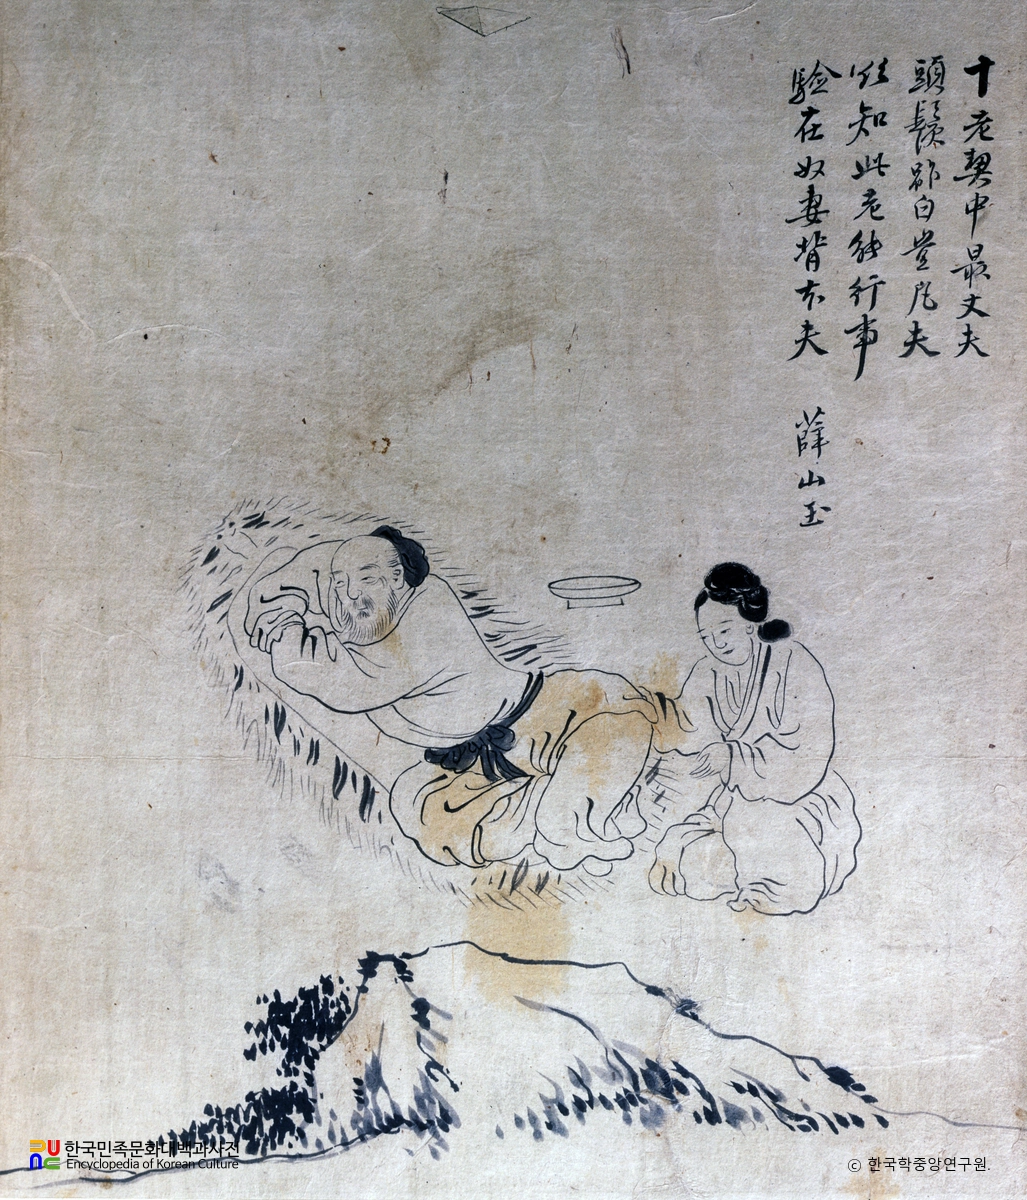 十老契中最丈夫
頭鬚郎白豈凡夫
誰知此老能行事
驗在奴妻背本夫
薛山玉
한국민족문화대백과사전
Encyclopedia of Korean Culture
© 한국학중앙연구원.